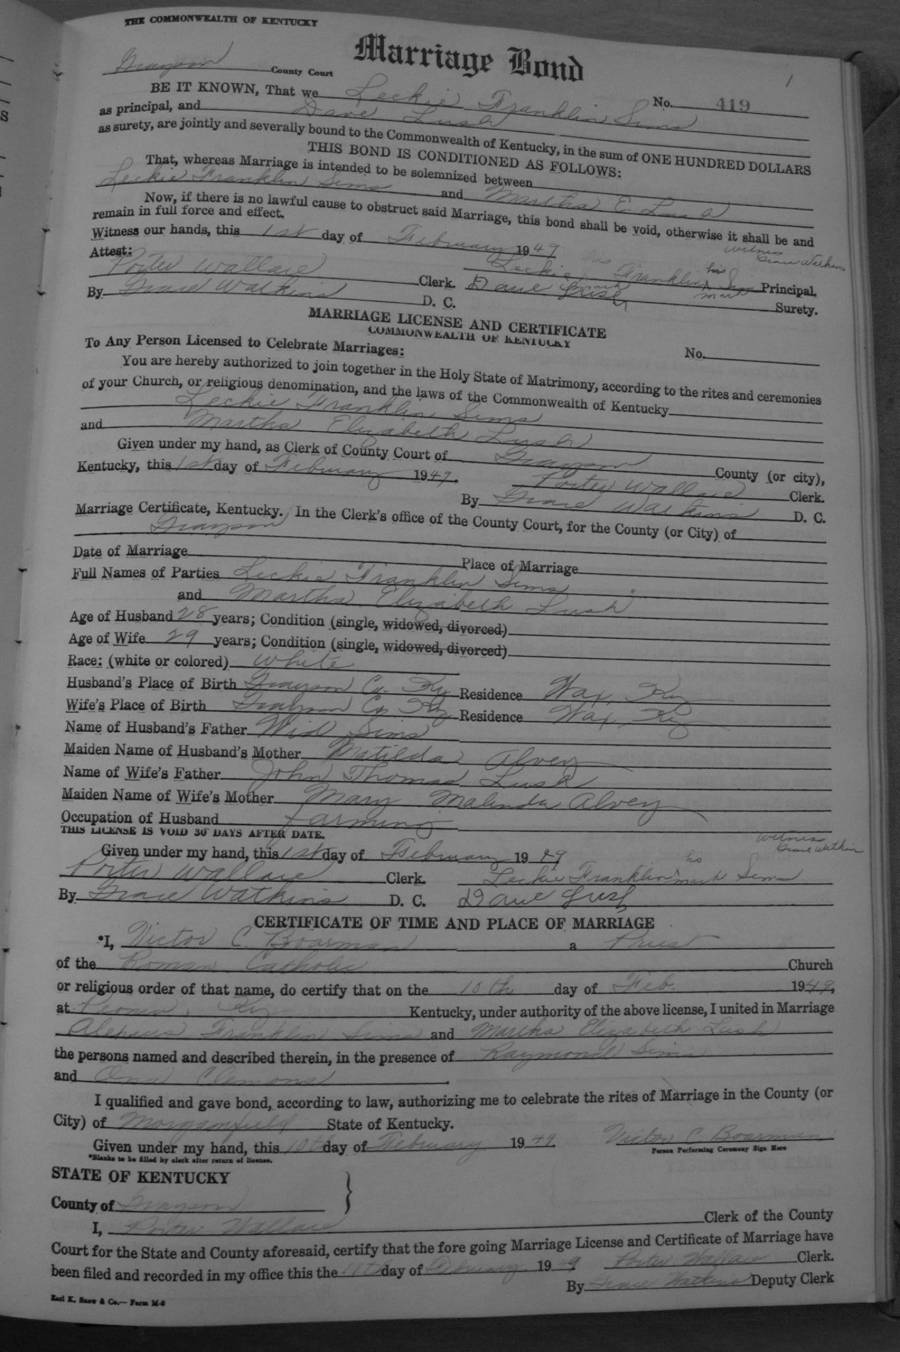 THE COMMONWEALTH OF KENTUCKY
Marriage Bond
1
Grayson County Court
No. 419
BE IT KNOWN, That we Leckie Franklin Sims
as principal, and Dave Lush
as surety, are jointly and severally bound to the Commonwealth of Kentucky, in the sum of ONE HUNDRED DOLLARS
THIS BOND IS CONDITIONED AS FOLLOWS:
That, whereas Marriage is intended to be solemnized between
Leckie Franklin Sims and Martha E Lush
Now, if there is no lawful cause to obstruct said Marriage, this bond shall be void, otherwise it shall be and
remain in full force and effect.
Witness our hands, this 1st day of February 1949
witness
Grace Watkins
Attest:
Leckie Franklin his mark Sims Principal.
Porter Wallace Clerk.
Dave Lush Surety.
By Grace Watkins D. C.
MARRIAGE LICENSE AND CERTIFICATE
COMMONWEALTH OF KENTUCKY
No.
To Any Person Licensed to Celebrate Marriages:
You are hereby authorized to join together in the Holy State of Matrimony, according to the rites and ceremonies
of your Church, or religious denomination, and the laws of the Commonwealth of Kentucky
Leckie Franklin Sims
and Martha Elizabeth Lush
Given under my hand, as Clerk of County Court of Grayson County (or city),
Kentucky, this 1st day of February 1949. Porter Wallace Clerk.
By Grace Watkins D. C.
Marriage Certificate, Kentucky. In the Clerk's office of the County Court, for the County (or City) of
Grayson
Date of Marriage Place of Marriage
Full Names of Parties Leckie Franklin Sims
and Martha Elizabeth Lush
Age of Husband 28 years; Condition (single, widowed, divorced)
Age of Wife 29 years; Condition (single, widowed, divorced)
Race: (white or colored) White
Husband's Place of Birth Grayson Co. Ky Residence Wax, Ky
Wife's Place of Birth Grayson Co Ky Residence Wax, Ky
Name of Husband's Father Wid Sims
Maiden Name of Husband's Mother Matilda Alvey
Name of Wife's Father John Thomas Lush
Maiden Name of Wife's Mother Mary Malinda Alvey
Occupation of Husband Farming
THIS LICENSE IS VOID 30 DAYS AFTER DATE.
Given under my hand, this 1st day of February 1949
witness
Grace Watkins
Porter Wallace Clerk. Leckie Franklin his mark Sims
By Grace Watkins D. C. Dave Lush
CERTIFICATE OF TIME AND PLACE OF MARRIAGE
*I, Victor C. Boarman a Priest
of the Roman Catholic Church
or religious order of that name, do certify that on the 10th day of Feb. 1949,
at Peonia, Ky. Kentucky, under authority of the above license, I united in Marriage
Franklin Sims and Martha Elizabeth Lush
the persons named and described therein, in the presence of Raymond Sims
and Ona Clemons.
I qualified and gave bond, according to law, authorizing me to celebrate the rites of Marriage in the County (or
City) of Morganfield State of Kentucky.
Given under my hand, this 10th day of February 1949. Victor C Boarman
*Blanks to be filled by clerk after return of license.
Person Performing Ceremony Sign Here
STATE OF KENTUCKY
County of Grayson
I, Porter Wallace Clerk of the County
Court for the State and County aforesaid, certify that the fore going Marriage License and Certificate of Marriage have
been filed and recorded in my office this the day of February 1949 Porter Wallace Clerk.
By Grace Watkins Deputy Clerk
Earl K. Snow & Co.—Form M-6